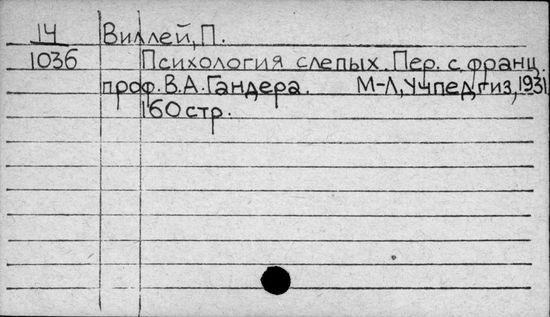 14 Виллей, П.
1036 Психология слепых. Пер. с франц.
проф. В.А. Гандера. М-Л, Учпедгиз, 1931
160 стр.